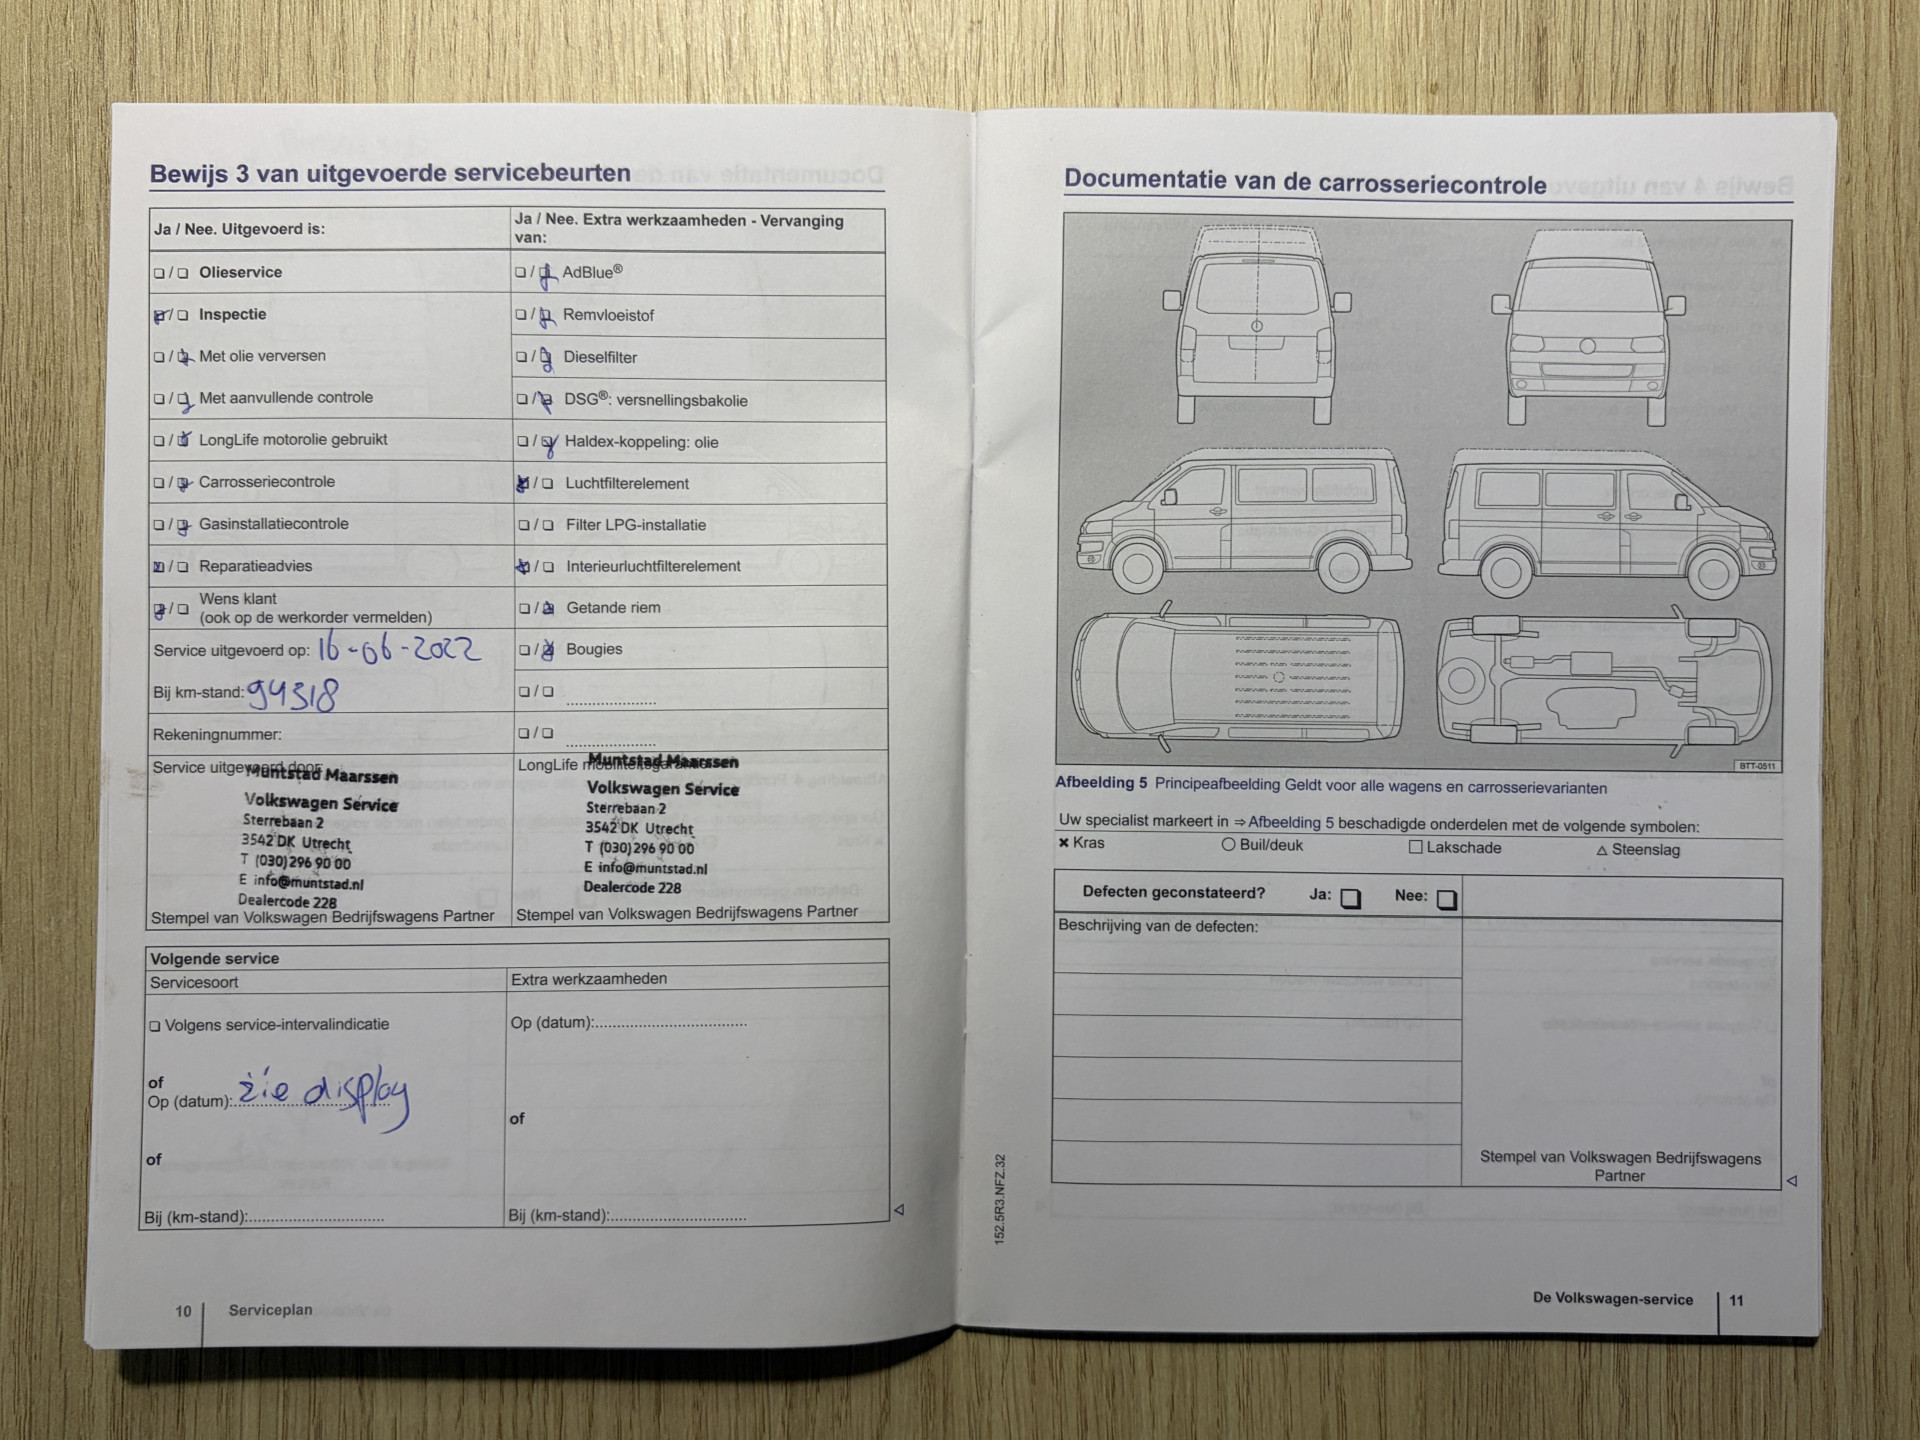 Bewijs 3 van uitgevoerde servicebeurten
Ja / Nee. Uitgevoerd is:
Ja / Nee. Extra werkzaamheden - Vervanging
van:
❏ / ❏ Olieservice
❏ / ❏ AdBlue®
❏ / ❏ Inspectie
❏ / ❏ Remvloeistof
❏ / ❏ Met olie verversen
❏ / ❏ Dieselfilter
❏ / ❏ Met aanvullende controle
❏ / ❏ DSG®: versnellingsbakolie
❏ / ❏ LongLife motorolie gebruikt
❏ / ❏ Haldex-koppeling: olie
❏ / ❏ Carrosseriecontrole
❏ / ❏ Luchtfilterelement
❏ / ❏ Gasinstallatiecontrole
❏ / ❏ Filter LPG-installatie
❏ / ❏ Reparatieadvies
❏ / ❏ Interieurluchtfilterelement
❏ / ❏ Wens klant
(ook op de werkorder vermelden)
❏ / ❏ Getande riem
Service uitgevoerd op: 16-06-2022
❏ / ❏ Bougies
Bij km-stand: 94318
❏ / ❏ .....................
Rekeningnummer:
❏ / ❏ .....................
Service uitgevoerd door:
Muntstad Maarssen
Volkswagen Service
Sterrebaan 2
3542 DK Utrecht
T (030) 296 90 00
E info@muntstad.nl
Dealercode 228
Stempel van Volkswagen Bedrijfswagens Partner
LongLife mobiliteitsgarantie
Muntstad Maarssen
Volkswagen Service
Sterrebaan 2
3542 DK Utrecht
T (030) 296 90 00
E info@muntstad.nl
Dealercode 228
Stempel van Volkswagen Bedrijfswagens Partner
Volgende service
Servicesoort
Extra werkzaamheden
❏ Volgens service-intervalindicatie
of
Op (datum): zie display
of
Bij (km-stand):
Op (datum):
of
Bij (km-stand):
10 Serviceplan
Documentatie van de carrosseriecontrole
BTT-0511
Afbeelding 5 Principeafbeelding Geldt voor alle wagens en carrosserievarianten
Uw specialist markeert in ⇒ Afbeelding 5 beschadigde onderdelen met de volgende symbolen:
× Kras ○ Buil/deuk □ Lakschade △ Steenslag
Defecten geconstateerd? Ja: ❏ Nee: ❏
Beschrijving van de defecten:
Stempel van Volkswagen Bedrijfswagens
Partner
152.5R3.NFZ.32
De Volkswagen-service 11